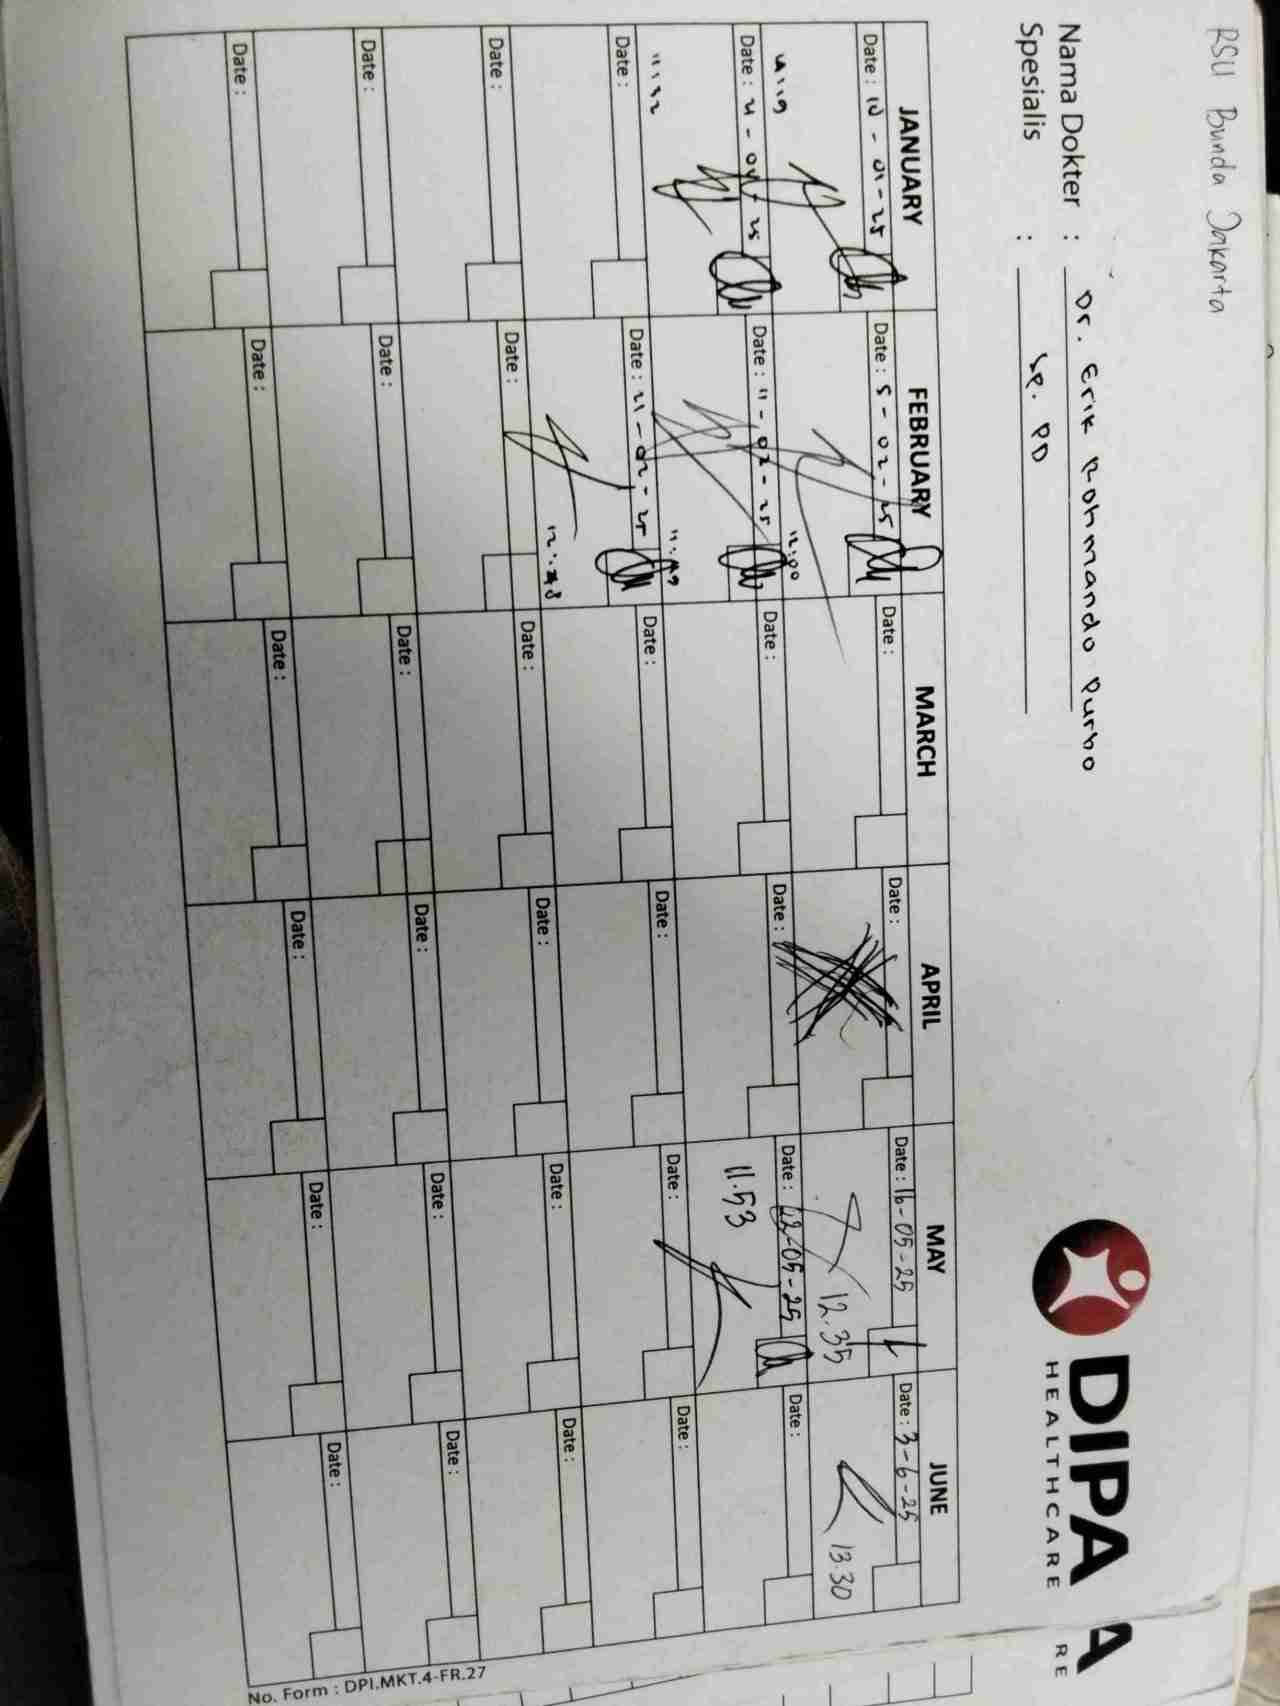 RSU Bunda Jakarta
DIPA
HEALTHCARE
A
RE
Nama Dokter : Dr. Erik Rohmando Purbo
Spesialis : Sp. PD
JANUARY FEBRUARY MARCH APRIL MAY JUNE
Date : 10-01-25 Date : 5-02-25 Date : Date : Date : 16-05-25 Date : 3-6-25
12.35 13.30
12:00
Date : Date : 11-02-25 Date : Date : Date : 22-05-25 Date :
11:32 11:49 11.53
Date : Date : 21-02-25 Date : Date : Date : Date :
Date : Date : Date : Date : Date : Date :
Date : Date : Date : Date : Date : Date :
Date : Date : Date : Date : Date : Date :
No. Form : DPI.MKT.4-FR.27